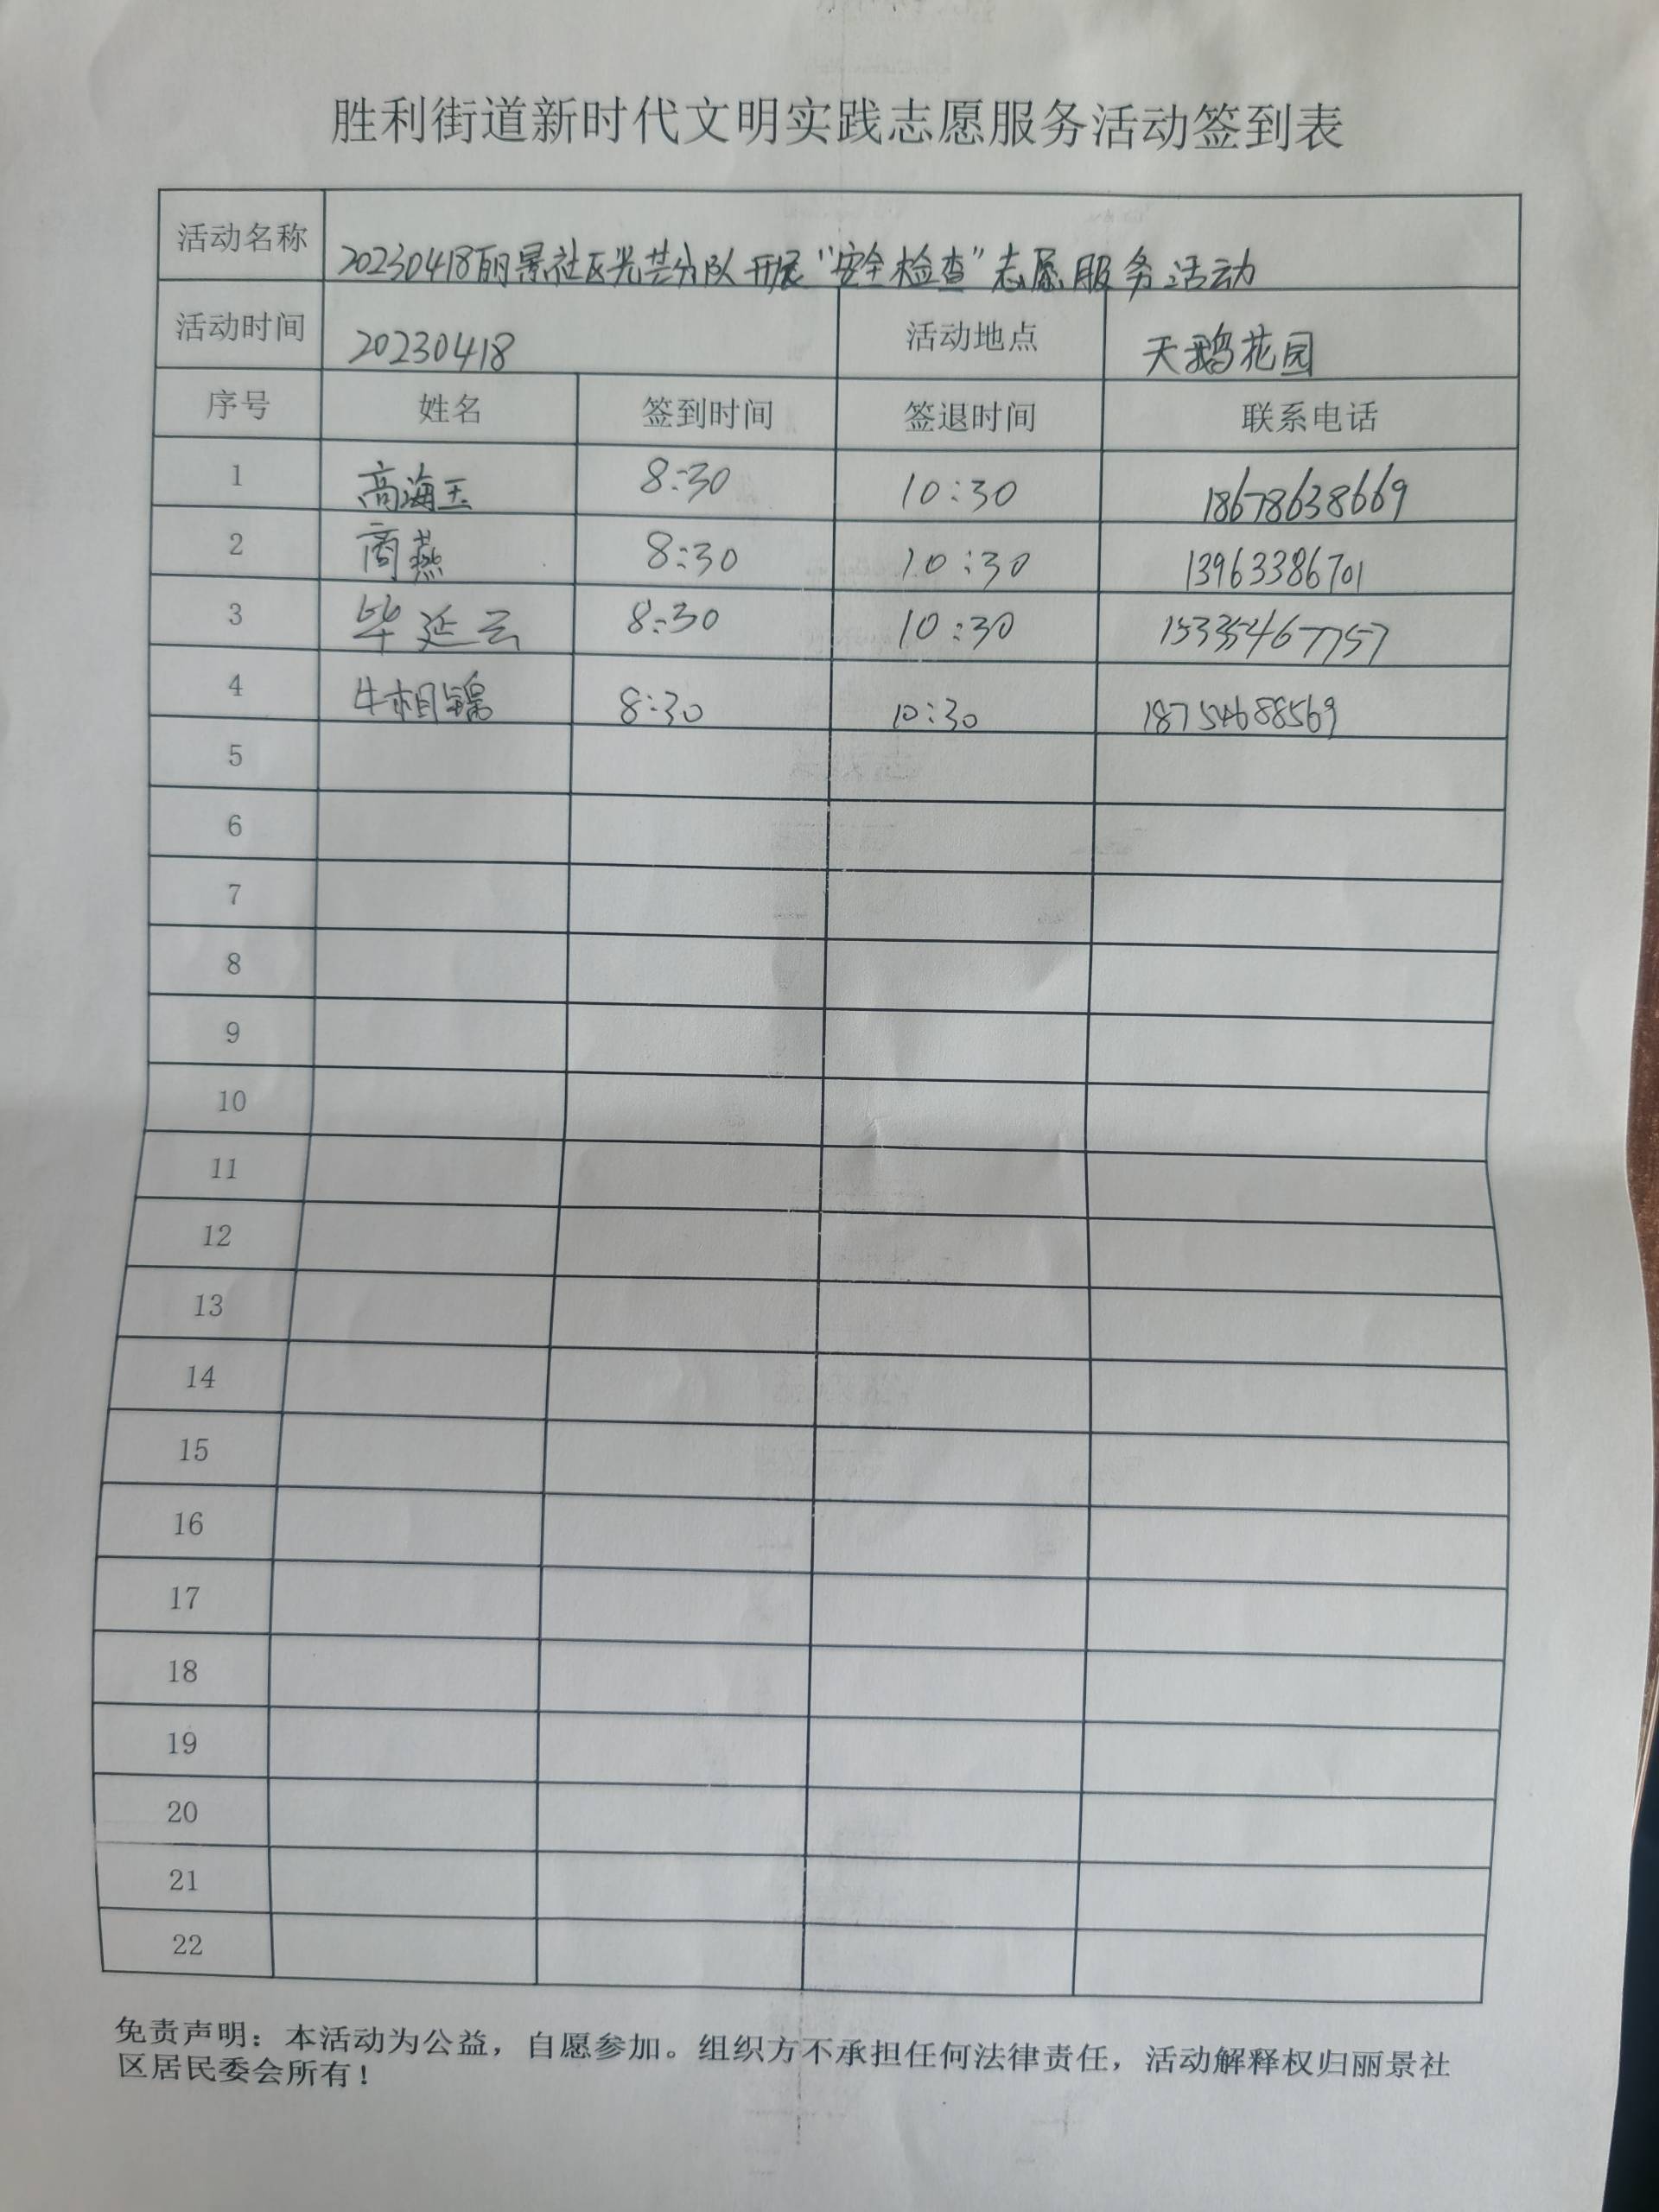 胜利街道新时代文明实践志愿服务活动签到表
活动名称 20230418丽景社区光芒分队开展“安全检查”志愿服务活动
活动时间 20230418 活动地点 天鹅花园
序号 姓名 签到时间 签退时间 联系电话
1 高海玉 8:30 10:30 18678638669
2 商燕 8:30 10:30 13963386701
3 毕延云 8:30 10:30 15335467757
4 牛相锦 8:30 10:30 18754688569
5
6
7
8
9
10
11
12
13
14
15
16
17
18
19
20
21
22
免责声明：本活动为公益，自愿参加。组织方不承担任何法律责任，活动解释权归丽景社
区居民委会所有！